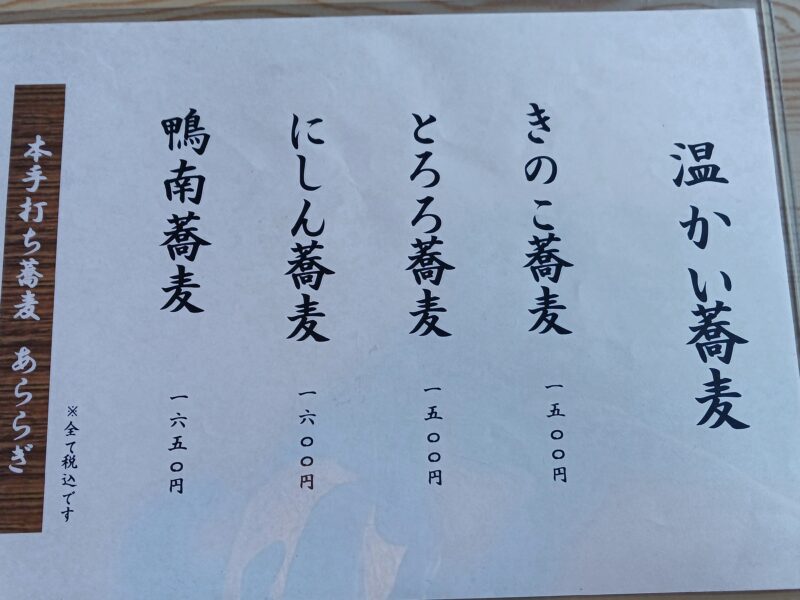 温かい蕎麦
きのこ蕎麦 一五〇〇円
とろろ蕎麦 一五〇〇円
にしん蕎麦 一六〇〇円
鴨南蕎麦 一六五〇円
※全て税込です
本手打ち蕎麦 あららぎ